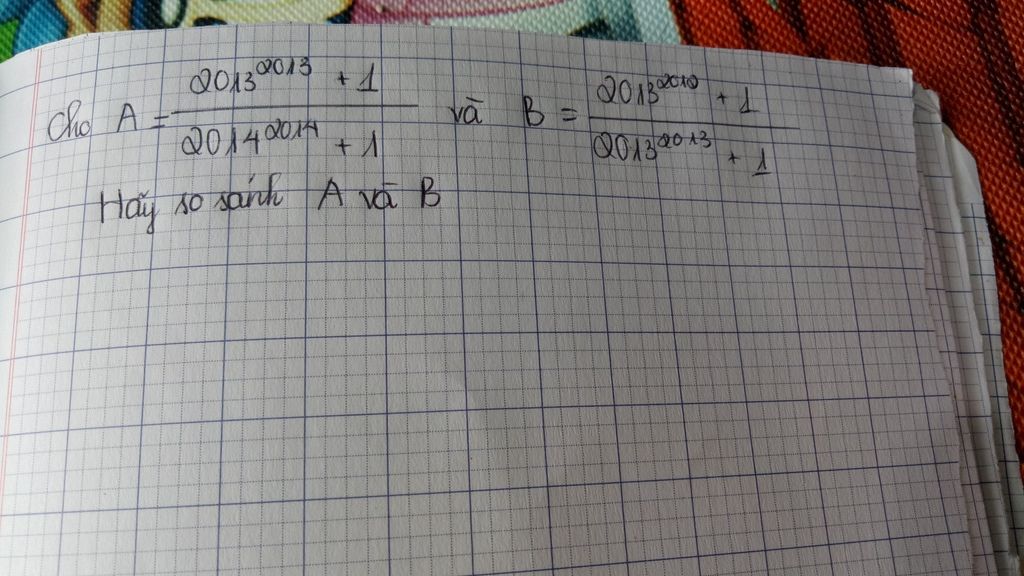 Cho A = \frac{2013^{2013} + 1}{2014^{2014} + 1} và B = \frac{2013^{2010} + 1}{2013^{2013} + 1}
Hãy so sánh A và B